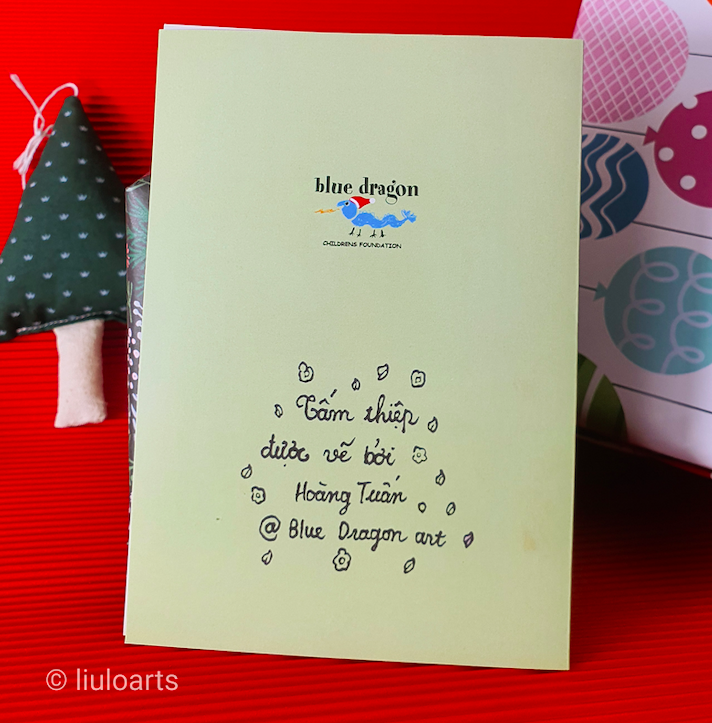 blue dragon
CHILDRENS FOUNDATION
Tấm thiệp
được vẽ bởi
Hoàng Tuấn
@ Blue Dragon art
© liuloarts